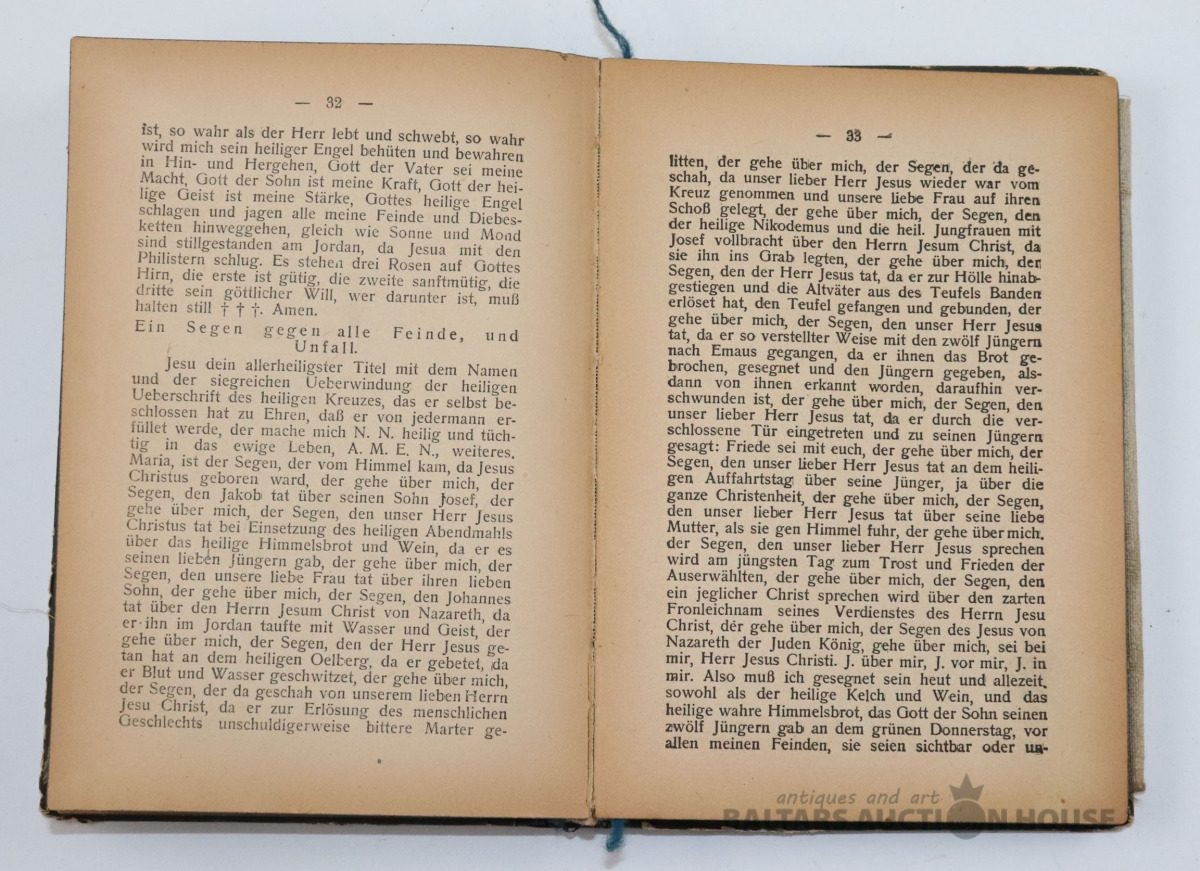 — 32 —
ist, so wahr als der Herr lebt und schwebt, so wahr
wird mich sein heiliger Engel behüten und bewahren
in Hin- und Hergehen, Gott der Vater sei meine
Macht, Gott der Sohn ist meine Kraft, Gott der hei-
lige Geist ist meine Stärke, Gottes heilige Engel
schlagen und jagen alle meine Feinde und Diebes-
ketten hinweggehen, gleich wie Sonne und Mond
sind stillgestanden am Jordan, da Jesua mit den
Philistern schlug. Es stehen drei Rosen auf Gottes
Hirn, die erste ist gütig, die zweite sanftmütig, die
dritte sein göttlicher Will, wer darunter ist, muß
halten still † † †. Amen.
Ein Segen gegen alle Feinde, und
Unfall.
Jesu dein allerheiligster Titel mit dem Namen
und der siegreichen Ueberwindung der heiligen
Ueberschrift des heiligen Kreuzes, das er selbst be-
schlossen hat zu Ehren, daß er von jedermann er-
füllet werde, der mache mich N. N. heilig und tüch-
tig in das ewige Leben, A. M. E. N., weiteres.
Maria, ist der Segen, der vom Himmel kam, da Jesus
Christus geboren ward, der gehe über mich, der
Segen, den Jakob tat über seinen Sohn Josef, der
gehe über mich, der Segen, den unser Herr Jesus
Christus tat bei Einsetzung des heiligen Abendmahls
über das heilige Himmelsbrot und Wein, da er es
seinen lieben Jüngern gab, der gehe über mich, der
Segen, den unsere liebe Frau tat über ihren lieben
Sohn, der gehe über mich, der Segen, den Johannes
tat über den Herrn Jesum Christ von Nazareth, da
er ihn im Jordan taufte mit Wasser und Geist, der
gehe über mich, der Segen, den der Herr Jesus ge-
tan hat an dem heiligen Oelberg, da er gebetet, da
er Blut und Wasser geschwitzet, der gehe über mich,
der Segen, der da geschah von unserem lieben Herrn
Jesu Christ, da er zur Erlösung des menschlichen
Geschlechts unschuldigerweise bittere Marter ge-
— 33 —
litten, der gehe über mich, der Segen, der da ge-
schah, da unser lieber Herr Jesus wieder war vom
Kreuz genommen und unsere liebe Frau auf ihren
Schoß gelegt, der gehe über mich, der Segen, den
der heilige Nikodemus und die heil. Jungfrauen mit
Josef vollbracht über den Herrn Jesum Christ, da
sie ihn ins Grab legten, der gehe über mich, der
Segen, den der Herr Jesus tat, da er zur Hölle hinab-
gestiegen und die Altväter aus des Teufels Banden
erlöset hat, den Teufel gefangen und gebunden, der
gehe über mich, der Segen, den unser Herr Jesus
tat, da er so verstellter Weise mit den zwölf Jüngern
nach Emaus gegangen, da er ihnen das Brot ge-
brochen, gesegnet und den Jüngern gegeben, als-
dann von ihnen erkannt worden, daraufhin ver-
schwunden ist, der gehe über mich, der Segen, den
unser lieber Herr Jesus tat, da er durch die ver-
schlossene Tür eingetreten und zu seinen Jüngern
gesagt: Friede sei mit euch, der gehe über mich, der
Segen, den unser lieber Herr Jesus tat an dem heili-
gen Auffahrtstag über seine Jünger, ja über die
ganze Christenheit, der gehe über mich, der Segen,
den unser lieber Herr Jesus tat über seine liebe
Mutter, als sie gen Himmel fuhr, der gehe über mich.
der Segen, den unser lieber Herr Jesus sprechen
wird am jüngsten Tag zum Trost und Frieden der
Auserwählten, der gehe über mich, der Segen, den
ein jeglicher Christ sprechen wird über den zarten
Fronleichnam seines Verdienstes des Herrn Jesu
Christ, der gehe über mich, der Segen des Jesus von
Nazareth der Juden König, gehe über mich, sei bei
mir, Herr Jesus Christi. J. über mir, J. vor mir, J. in
mir. Also muß ich gesegnet sein heut und allezeit,
sowohl als der heilige Kelch und Wein, und das
heilige wahre Himmelsbrot, das Gott der Sohn seinen
zwölf Jüngern gab an dem grünen Donnerstag, vor
allen meinen Feinden, sie seien sichtbar oder un-
antiques and art
BALTARS AUCTION HOUSE